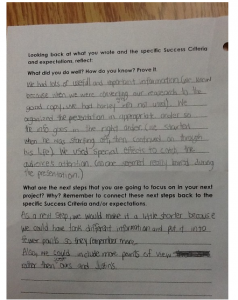 Looking back at what you wrote and the specific Success Criteria
and expectations, reflect:
What did you do well? How do you know? Prove it
We had lots of useful and important information (we know
because when we were converting our research to the
good copy, we had hardly any not used). We
organized the presentation in appropriate order so
the info goes in the right order (we started
when he was starting off, then continued on through
his life). We used special effects to catch the
audience's attention (no one seemed really bored during
the presentation.)
What are the next steps that you are going to focus on in your next
project? Why? Remember to connect these next steps back to the
specific Success Criteria and/or expectations.
As a next step, we would make it a little shorter because
we could have took different information and put it into
fewer points so they remember them.
Also, we could include more points of view
rather than ours and